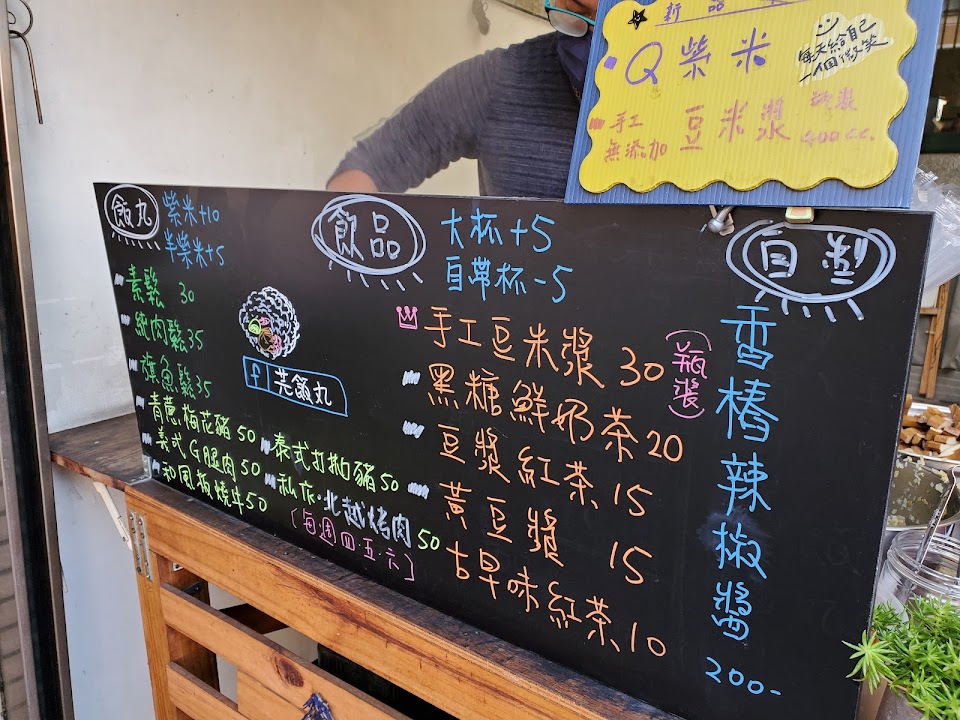 新品
Q紫米
每天給自己
一個微笑
手工
無添加
豆米漿
瓶裝
400cc.
飯丸
紫米+10
半紫米+5
素鬆 30
純肉鬆 35
旗魚鬆 35
青蔥梅花豬 50
美式G腿肉 50
和風板燒牛 50
泰式打拋豬 50
私房·北越烤肉 50
(每周四·五·六)
f 芫飯丸
飲品
大杯+5
自帶杯-5
手工豆米漿 30
(瓶裝)
黑糖鮮奶茶 20
豆漿紅茶 15
黃豆漿 15
古早味紅茶 10
自製
香椿辣椒醬
200-